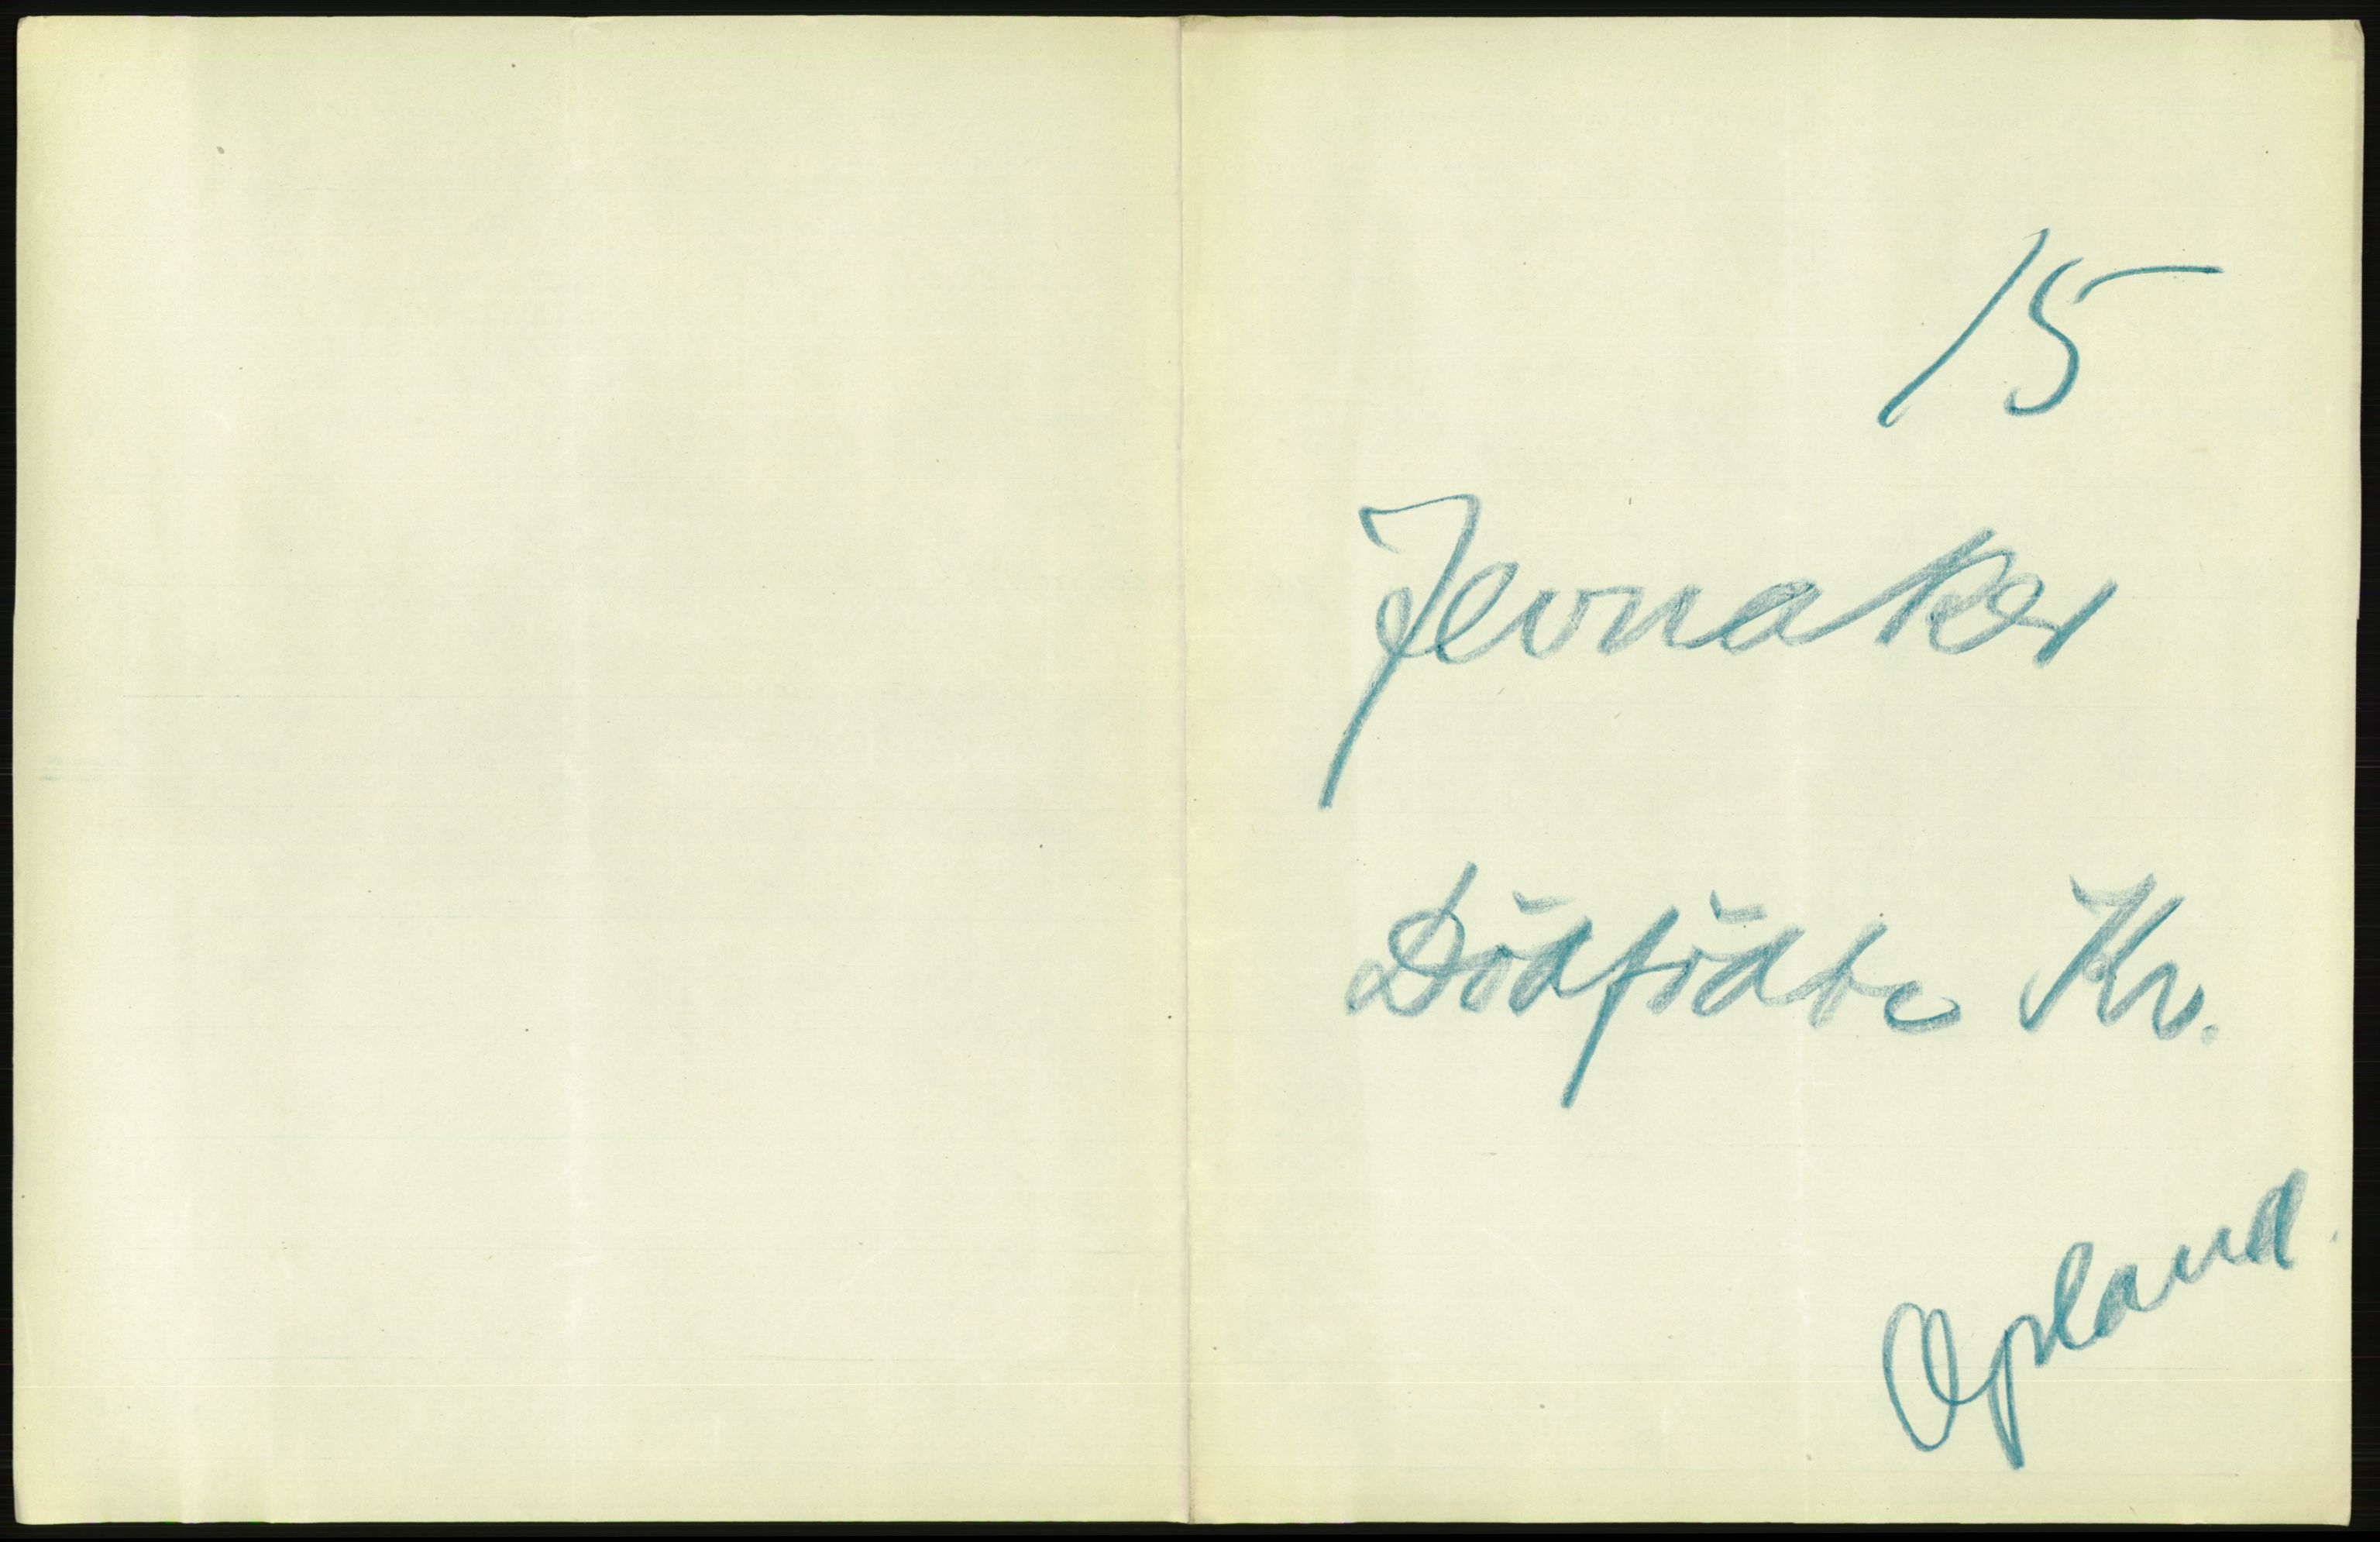 15
Jevnaker
Dödfödte Kv.
Opland.